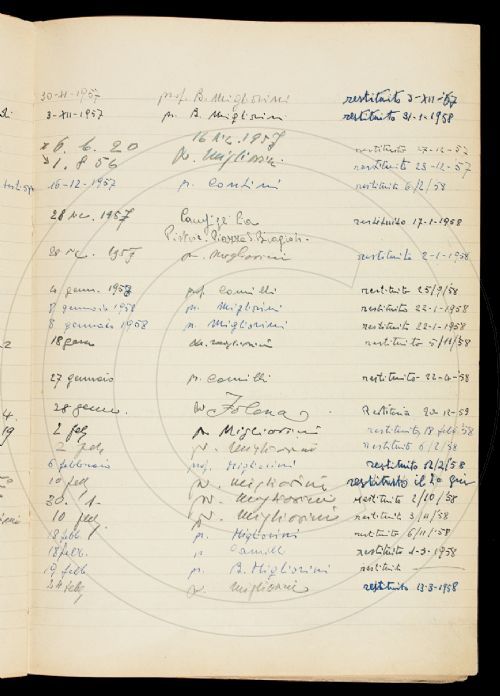 30-XI-1957 prof. B. Migliorini restituito 3-XII-57
3-XII-1957 p. B. Migliorini restituito 31-1-1958
6. 6. 20 16 dic. 1957 restituito 17-12-57
1. 8 56 p. Migliorini restituito 23-12-57
16-12-1957 p. Contini restituito 6/2/58
28 dic. 1957 restituito 17-1-1958
Pistoia. Piazza S.
28 dic. 1957 p. Migliorini restituito 2-1-1958
4 genn. 1958 prof. Camilli restituito 25/9/58
8 gennaio 1958 p. Migliorini restituito 22-1-1958
8 gennaio 1958 p. Migliorini restituito 22-1-1958
18 genn p. Migliorini restituito 5/11/58
27 gennaio p. Camilli restituito 22-4-58
28 genn. Folena Restituito 20-12-59
2 feb p. Migliorini restituito 18 febb 58
2 feb p. Migliorini restituito 6/2/58
6 febbraio prof. Migliorini restituito 12/2/58
10 feb p. Migliorini restituito il 20 giu
30. 1. p. Migliorini restituito 2/10/58
10 feb p. Migliorini restituito 3/11/58
18 febb p. Migliorini restituito 6/11/58
18 febb. p. Camilli restituito 1-3-1958
19 febb p. B. Migliorini restituito
24 feb p. Migliorini restituito 13-3-1958